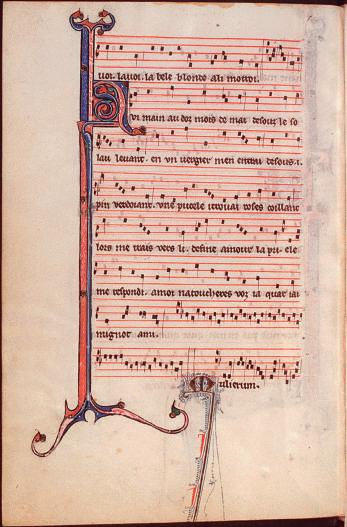 uoi. lauoi. la bele blonde a li mottroi.
Hui main au doz mois de mai. desouz le so
lau leuant. en un uergier men entrai. desous .i.
pin uerdoiant. une pucele i trouai roses coillant
lors me trais uers li. de fine amour la pri. ele
me respondi. a moi natoucheres uoz ia quar iai
mignot ami.
Mulierum.